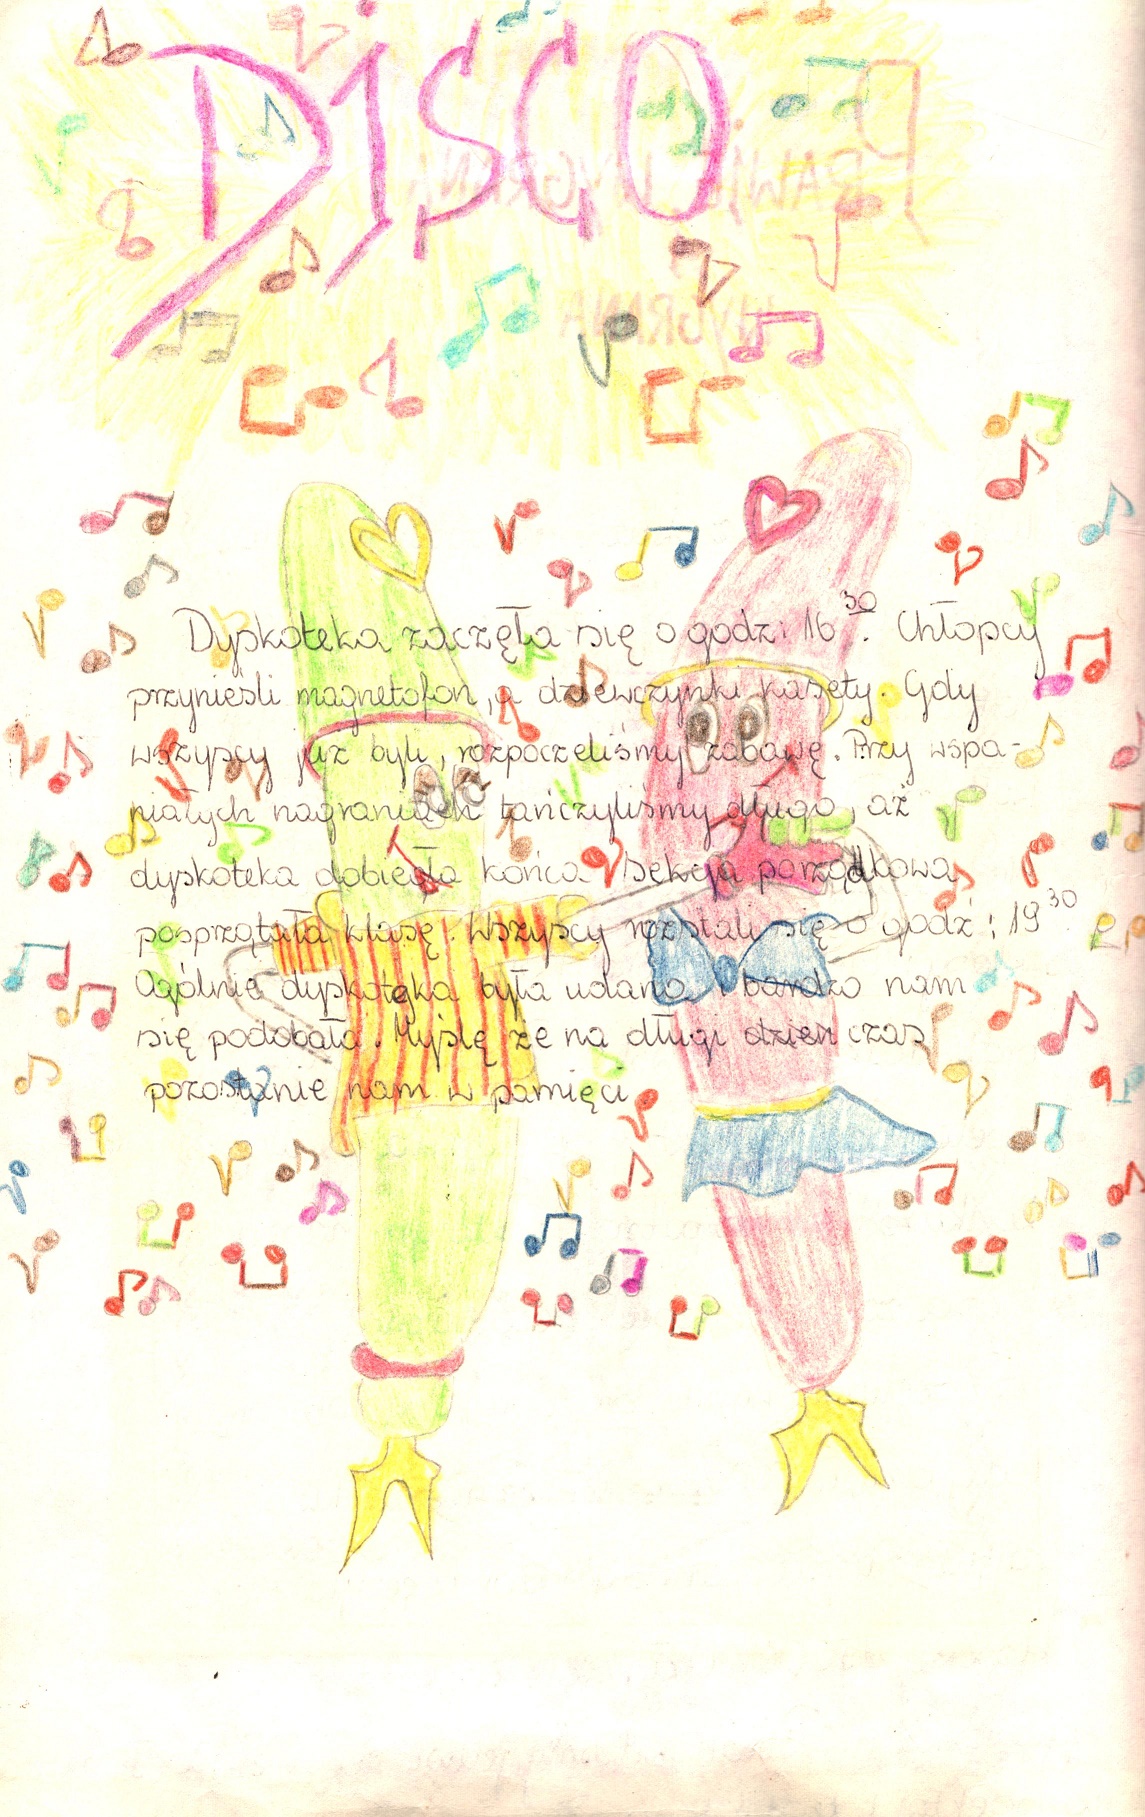 DISCO
Dyskoteka zaczęła się o godz: 16³⁰. Chłopcy
przynieśli magnetofon, a dziewczynki kasety. Gdy
wszyscy już byli, rozpoczeliśmy zabawę. Przy wspa-
niałych nagraniach tańczyliśmy długo, aż
dyskoteka dobiegła końca. Sekcja porządkowa
posprzątała klasę. Wszyscy rozstali się o godź: 19³⁰.
Ogólnie dyskoteka była udana i bardzo nam
się podobała. Myślę że na długi dzień czas
pozostanie nam w pamięci